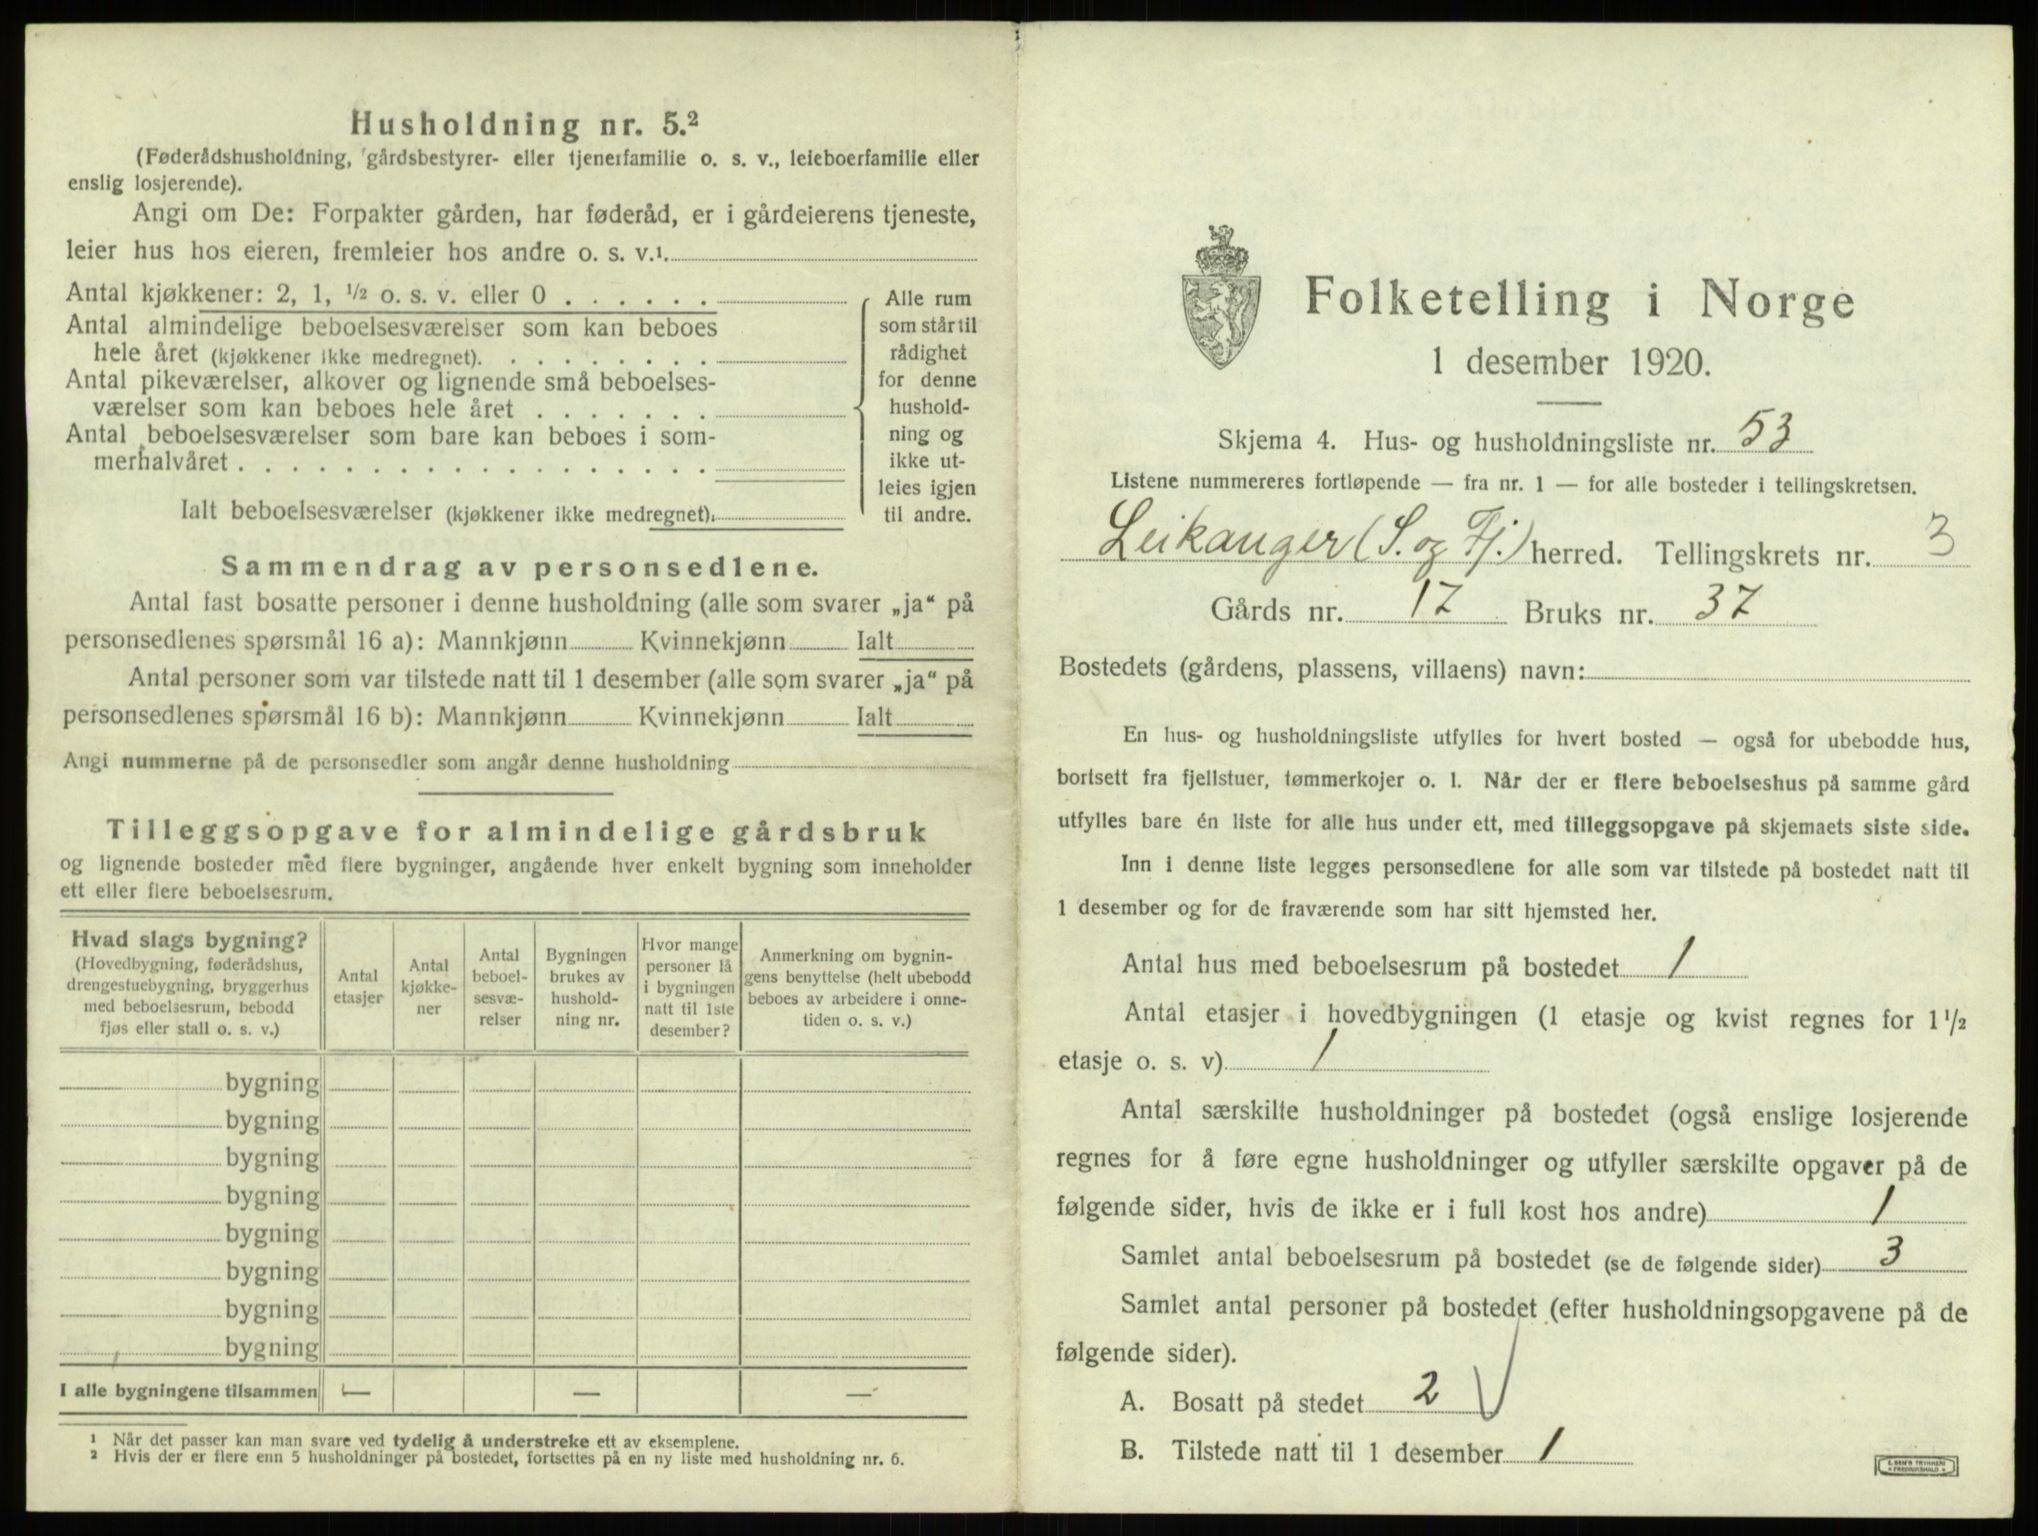 Husholdning nr. 5.²
(Føderådshusholdning, gårdsbestyrer- eller tjenerfamilie o. s. v., leieboerfamilie eller
enslig losjerende).
Angi om De: Forpakter gården, har føderåd, er i gårdeierens tjeneste,
leier hus hos eieren, fremleier hos andre o. s. v.¹
Antal kjøkkener: 2, 1, ½ o. s. v. eller 0 . . . . . .
Antal almindelige beboelsesværelser som kan beboes
hele året (kjøkkener ikke medregnet). . . . . . . . .
Antal pikeværelser, alkover og lignende små beboelses-
værelser som kan beboes hele året . . . . . . .
Antal beboelsesværelser som bare kan beboes i som-
merhalvåret . . . . . . . . . . . . . . . . .
Ialt beboelsesværelser (kjøkkener ikke medregnet).
Alle rum
som står til
rådighet
for denne
hushold-
ning og
ikke ut-
leies igjen
til andre.
Sammendrag av personsedlene.
Antal fast bosatte personer i denne husholdning (alle som svarer „ja“ på
personsedlenes spørsmål 16 a): Mannkjønn Kvinnekjønn Ialt
Antal personer som var tilstede natt til 1 desember (alle som svarer „ja“ på
personsedlenes spørsmål 16 b): Mannkjønn Kvinnekjønn Ialt
Angi nummerne på de personsedler som angår denne husholdning
Tilleggsopgave for almindelige gårdsbruk
og lignende bosteder med flere bygninger, angående hver enkelt bygning som inneholder
ett eller flere beboelsesrum.
Hvad slags bygning?
(Hovedbygning, føderådshus,
drengestuebygning, bryggerhus
med beboelsesrum, bebodd
fjøs eller stall o. s. v.)
Antal
etasjer
Antal
kjøkke-
ner
Antal
beboel-
sesvæ-
relser
Bygningen
brukes av
hushold-
ning nr.
Hvor mange
personer lå
i bygningen
natt til 1ste
desember?
Anmerkning om bygnin-
gens benyttelse (helt ubebodd
beboes av arbeidere i onne-
tiden o. s. v.)
bygning
bygning
bygning
bygning
bygning
bygning
bygning
bygning
I alle bygningene tilsammen — — —
¹ Når det passer kan man svare ved tydelig å understreke ett av eksemplene.
² Hvis der er flere enn 5 husholdninger på bostedet, fortsettes på en ny liste med husholdning nr. 6.
Folketelling i Norge
1 desember 1920.
Skjema 4. Hus- og husholdningsliste nr. 53
Listene nummereres fortløpende — fra nr. 1 — for alle bosteder i tellingskretsen.
Leikanger (S. og Fj.) herred. Tellingskrets nr. 3
Gårds nr. 17 Bruks nr. 37
Bostedets (gårdens, plassens, villaens) navn:
En hus- og husholdningsliste utfylles for hvert bosted — også for ubebodde hus,
bortsett fra fjellstuer, tømmerkojer o. l. Når der er flere beboelseshus på samme gård
utfylles bare én liste for alle hus under ett, med tilleggsopgave på skjemaets siste side.
Inn i denne liste legges personsedlene for alle som var tilstede på bostedet natt til
1 desember og for de fraværende som har sitt hjemsted her.
Antal hus med beboelsesrum på bostedet 1
Antal etasjer i hovedbygningen (1 etasje og kvist regnes for 1½
etasje o. s. v) 1
Antal særskilte husholdninger på bostedet (også enslige losjerende
regnes for å føre egne husholdninger og utfyller særskilte opgaver på de
følgende sider, hvis de ikke er i full kost hos andre) 1
Samlet antal beboelsesrum på bostedet (se de følgende sider) 3
Samlet antal personer på bostedet (efter husholdningsopgavene på de
følgende sider).
A. Bosatt på stedet 2
B. Tilstede natt til 1 desember 1